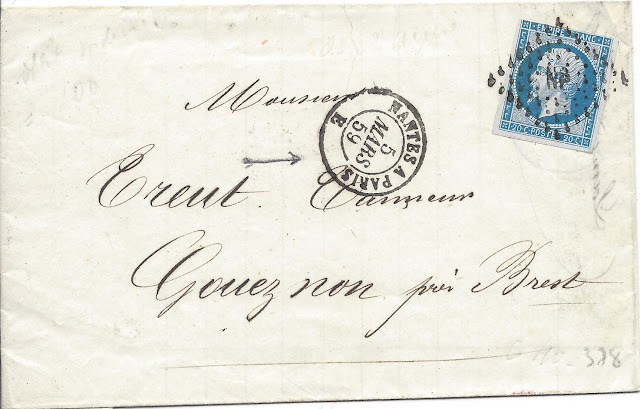 EMPIRE FRANC
20 C. POSTE 20 C.
NP
Monsieur
NANTES A PARIS
5
MARS
59
E
Creut Tanneur
Goueznon près Brest
378